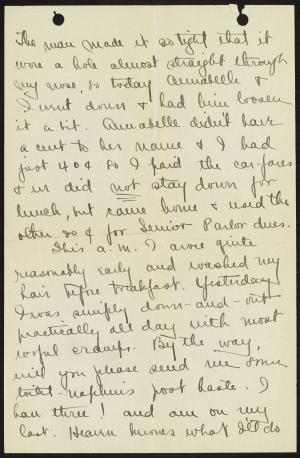 The man made it so tight that it
wore a hole almost straight through
my nose, so today Annabelle &
I went down & had him loosen
it a bit. Annabelle didn't have
a cent to her name & I had
just 40¢ so I paid the car-fares
& we did not stay down for
lunch, but came home & used the
other 20¢ for Senior Parlor dues.
This a.m. I arose quite
reasonably early and washed my
hair before breakfast. Yesterday
I was simply down-and-out
practically all day with most
awful cramps. By the way,
will you please send me some
toilet-napkins post haste. I
have three! and am on my
last. Heaven knows what I'll do